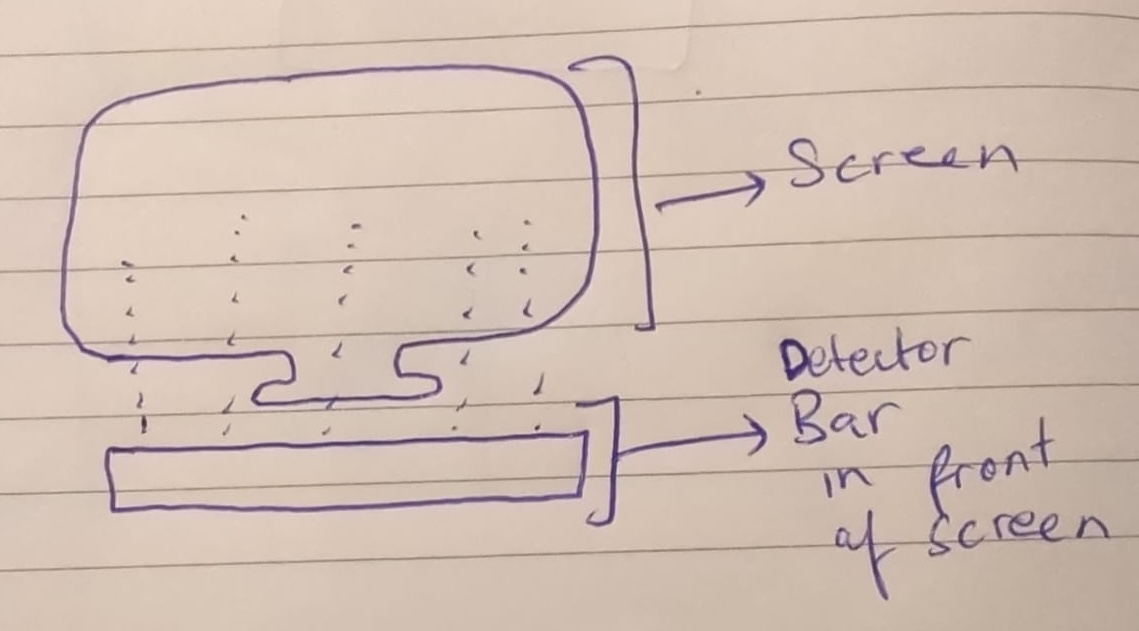 Screen
Detector
Bar
in front
of screen